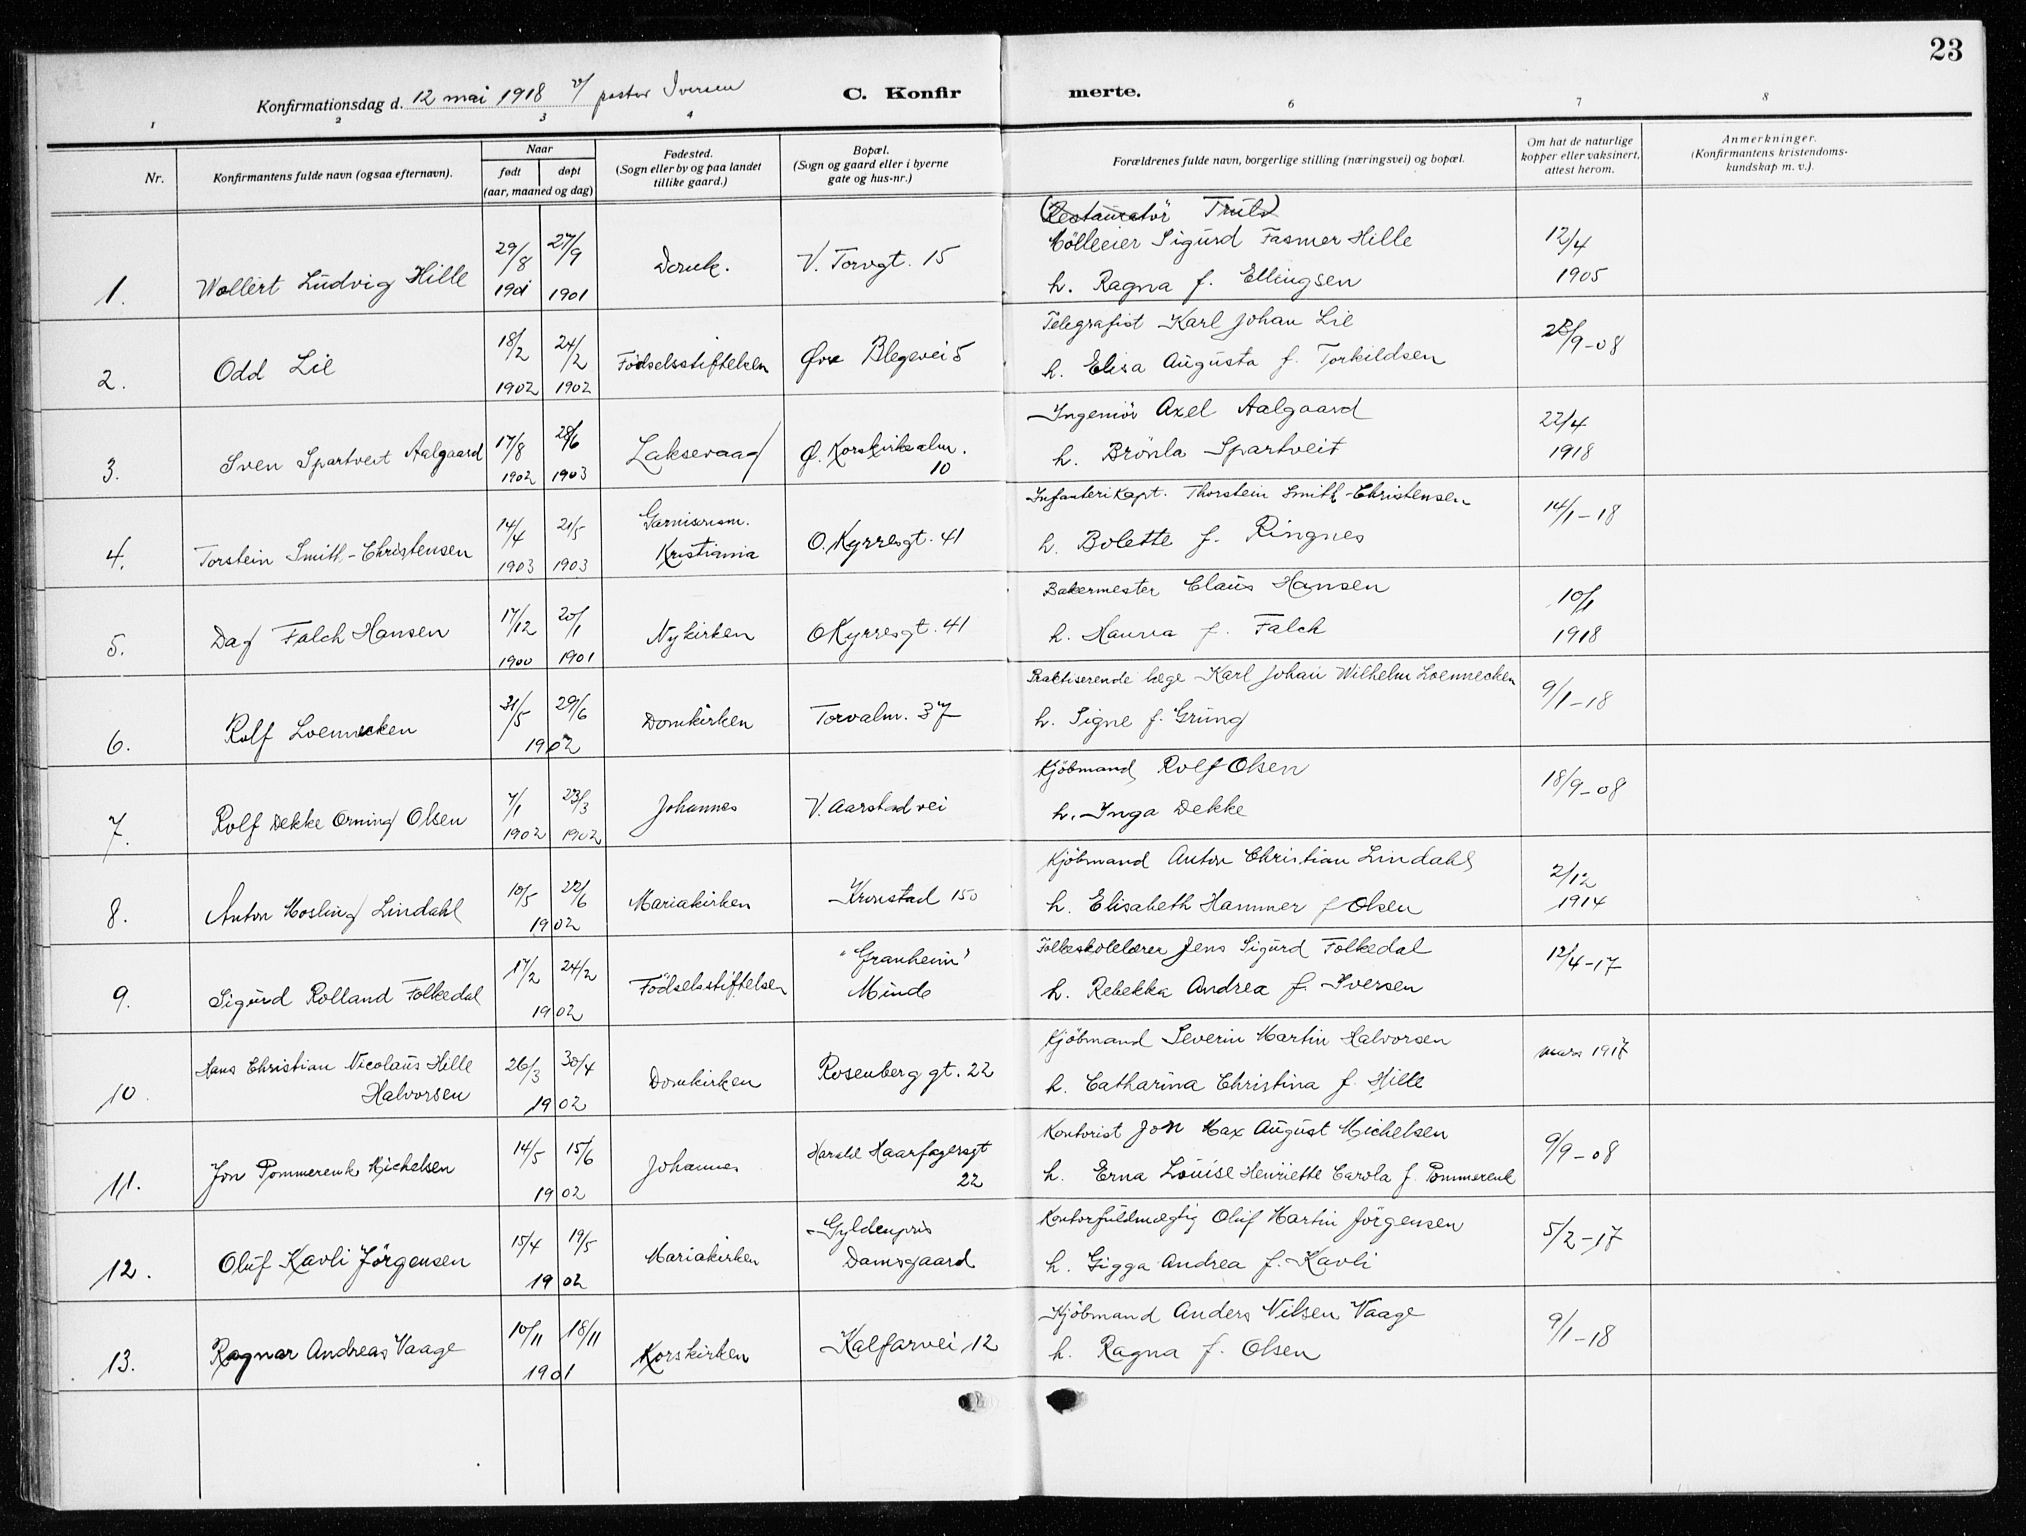 23
Konfirmationsdag d. 12 mai 1918 v/ pastor Iversen
C. Konfir merte.
1 2 3 4 6 7 8
Nr. Konfirmantens fulde navn (ogsaa efternavn). Naar født døpt (aar, maaned og dag) Fødested. (Sogn eller by og paa landet tillike gaard.) Bopæl. (Sogn og gaard eller i byerne gate og hus-nr.) Forældrenes fulde navn, borgerlige stilling (næringsvei) og bopæl. Om hat de naturlige kopper eller vaksinert, attest herom. Anmerkninger. (Konfirmantens kristendoms- kundskap m. v.).
(Restauratör Truls)
1. Wollert Ludvig Hille 29/8 1901 27/9 1901 Domk. V. Torvgt. 15 Mölleeier Sigurd Fasmer Hille 12/4 1905
h. Ragna f. Ellingsen
2. Odd Lie 18/2 1902 24/2 1902 Födselsstiftelsen Øvre Blegevei 5 Telegrafist Karl Johan Lie 28/9-08
h. Elisa Augusta f. Torkildsen
3. Sven Spartveit Aalgaard 17/8 1902 28/6 1903 Laksevaag Ø. Korskirkealm. 10 Ingeniör Axel Aalgaard 22/4 1918
h. Brönla Spartveit
4. Torstein Smith-Christensen 14/4 1903 21/5 1903 Garnisonsm. Kristiania O. Kyrresgt. 41 Infanterikapt. Thorstein Smith-Christensen 14/1-18
h. Bolette f. Ringnes
5. Dag Falch Hansen 17/12 1900 20/1 1901 Nykirken O Kyrresgt. 41 Bakermester Claus Hansen 10/1 1918
h. Hanna f. Falch
6. Rolf Loennecken 31/5 29/6 1902 Domkirken Torvalm. 37 Praktiserende læge Karl Johan Wilhelm Loennecken 9/1-18
h. Signe f. Grung
7. Rolf Dekke Orning Olsen 7/1 1902 23/3 1902 Johannes V. Aarstadvei Kjöbmand Rolf Olsen 18/9-08
h. Inga Dekke
8. Anton Mosling Lindahl 10/5 22/6 1902 Mariakirken Kronstad 150 Kjöbmand Anton Christian Lindahl 2/12 1914
h. Elisabeth Hammer f Olsen
9. Sigurd Rolland Folkedal 17/2 24/2 1902 Födselsstiftelsen "Granheim" Minde Folkeskolelærer Jens Sigurd Folkedal 12/4-17
h. Rebekka Andrea f. Iversen
10. Hans Christian Nicolaus Hille Halvorsen 26/3 30/4 1902 Domkirken Rosenberg gt. 22 Kjöbmand Severin Martin Halvorsen mars 1917
h. Catharina Christina f. Hille
11. Jon Pommerenk Michelsen 14/5 15/6 1902 Johannes Harald Haarfagersgt 22 Kontorist Jon Max August Michelsen 9/9-08
h. Erna Louise Henriette Carola f. Pommerenk
12. Oluf Kavli Jörgensen 15/4 19/5 1902 Mariakirken Gyldenpris Damsgaard Kontorfuldmægtig Oluf Martin Jörgensen 5/2-17
h. Gigga Andrea f. Kavli
13. Ragnar Andreas Vaage 10/11 18/11 1901 Korskirken Kalfarvei 12 Kjöbmand Anders Nilsen Vaage 9/1-18
h. Ragna f. Olsen